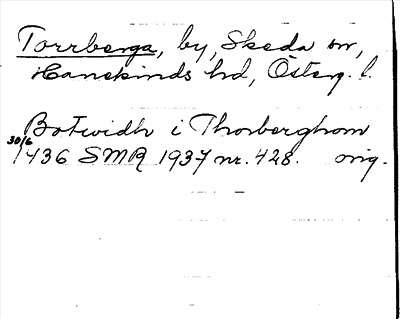 Torrberga, by, Skeda sn,
Hanekinds hd, Österg. l.
Botwidh i Thorberghom
30/6 1436 SMR 1937 nr. 428. orig.